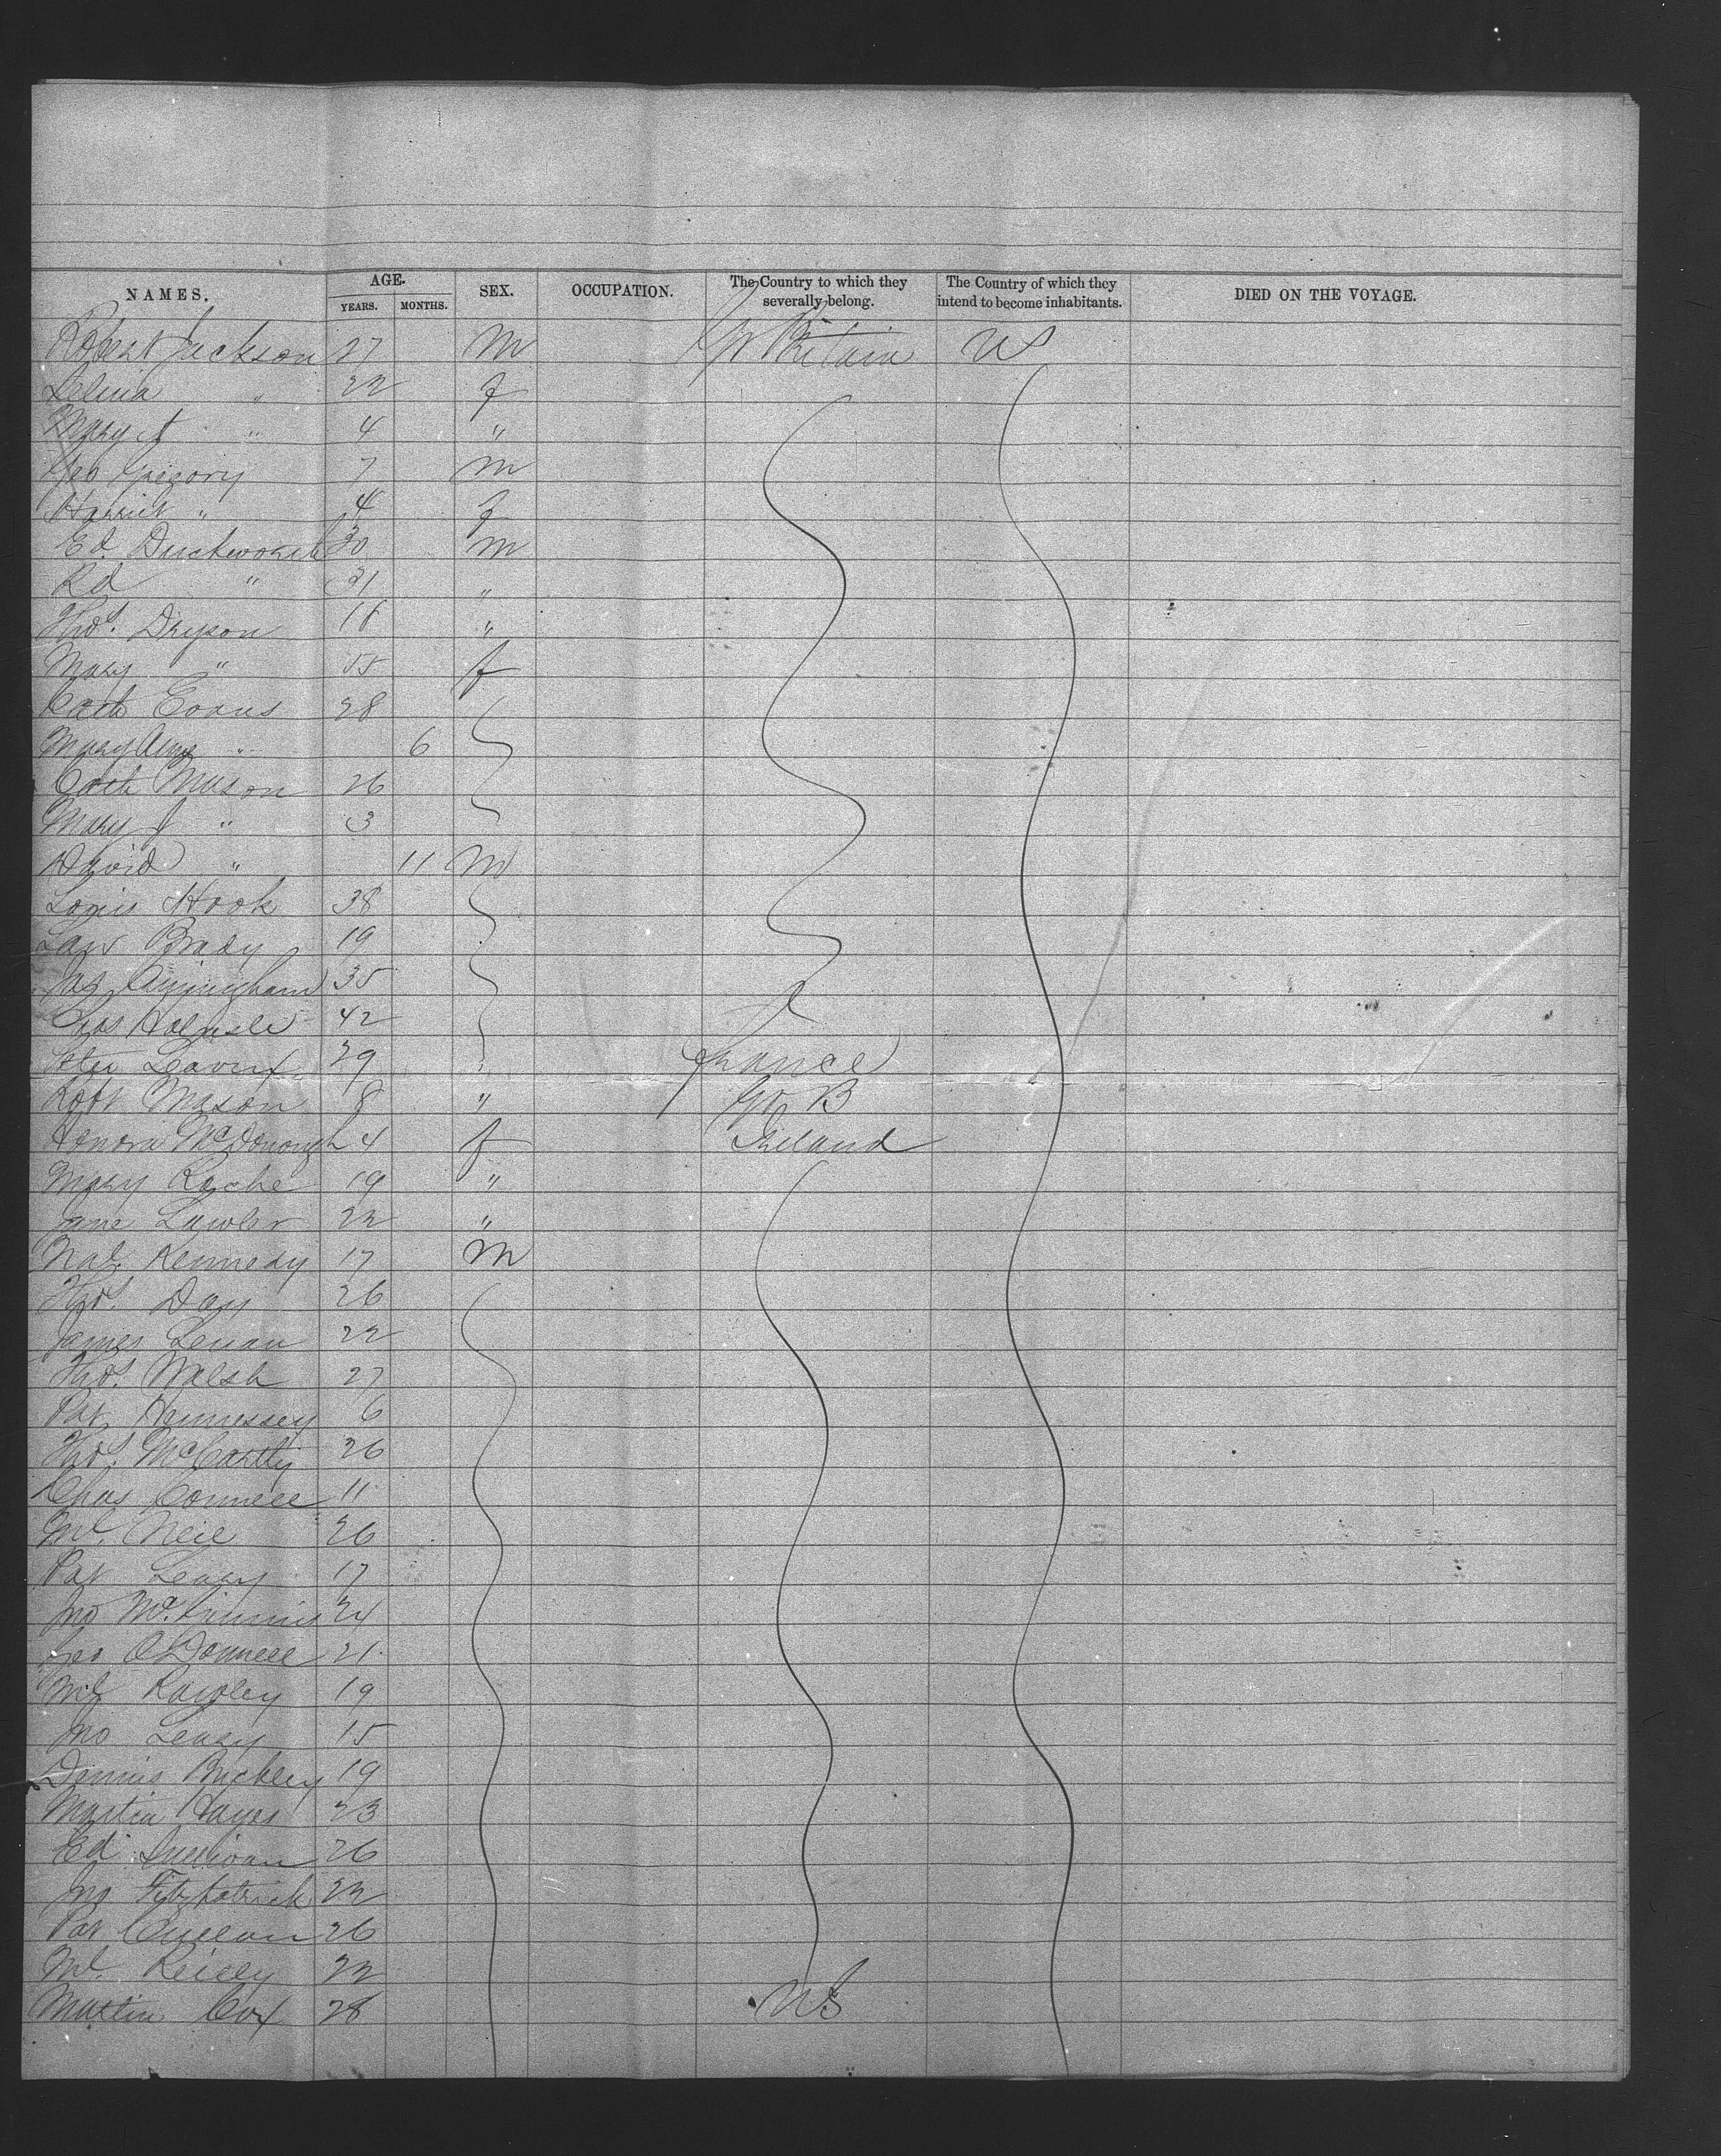 NAMES. AGE. YEARS. MONTHS. SEX. OCCUPATION. The Country to which they severally belong. The Country of which they intend to become inhabitants. DIED ON THE VOYAGE.
Robert Jackson 27 M Gt Britain US
Selina " 22 f
Mary A " 4 "
Geo Gregory 7 M
Harriet " 4 f
Ed. Duckworth 30 M
Rd " 31 "
Thos. Dryson 18 "
Mary " 55 f
Cath Evans 28
Mary Anne " 6
Cath Mason 26
Mary J " 3
David " 11 M
Louis Hook 38
Law Brady 19
Jas Cunningham 35
Chas 42
Peter 29 France
Robt Mason 8 " Gt B
Honora McDonough 4 f Ireland
Mary Roche 19 "
Jane Lawler 22 "
Kennedy 17 M
Thos. Day 26
James Lenan 22
Thos. Walsh 27
Pat Hennessey 6
Thos. McCarthy 26
Chas Connell 11
Ml. Neil 26
Pat Leary 17
Jno 24
Geo O'Donnell 21
Ml Rawley 19
Jno Leary 15
Dennis Buckley 19
Martin Hayes 23
Ed Sullivan 26
Jno Fitzpatrick 22
Pat Cullan 26
Ml. Reilly 22
Martin Cox 28 US